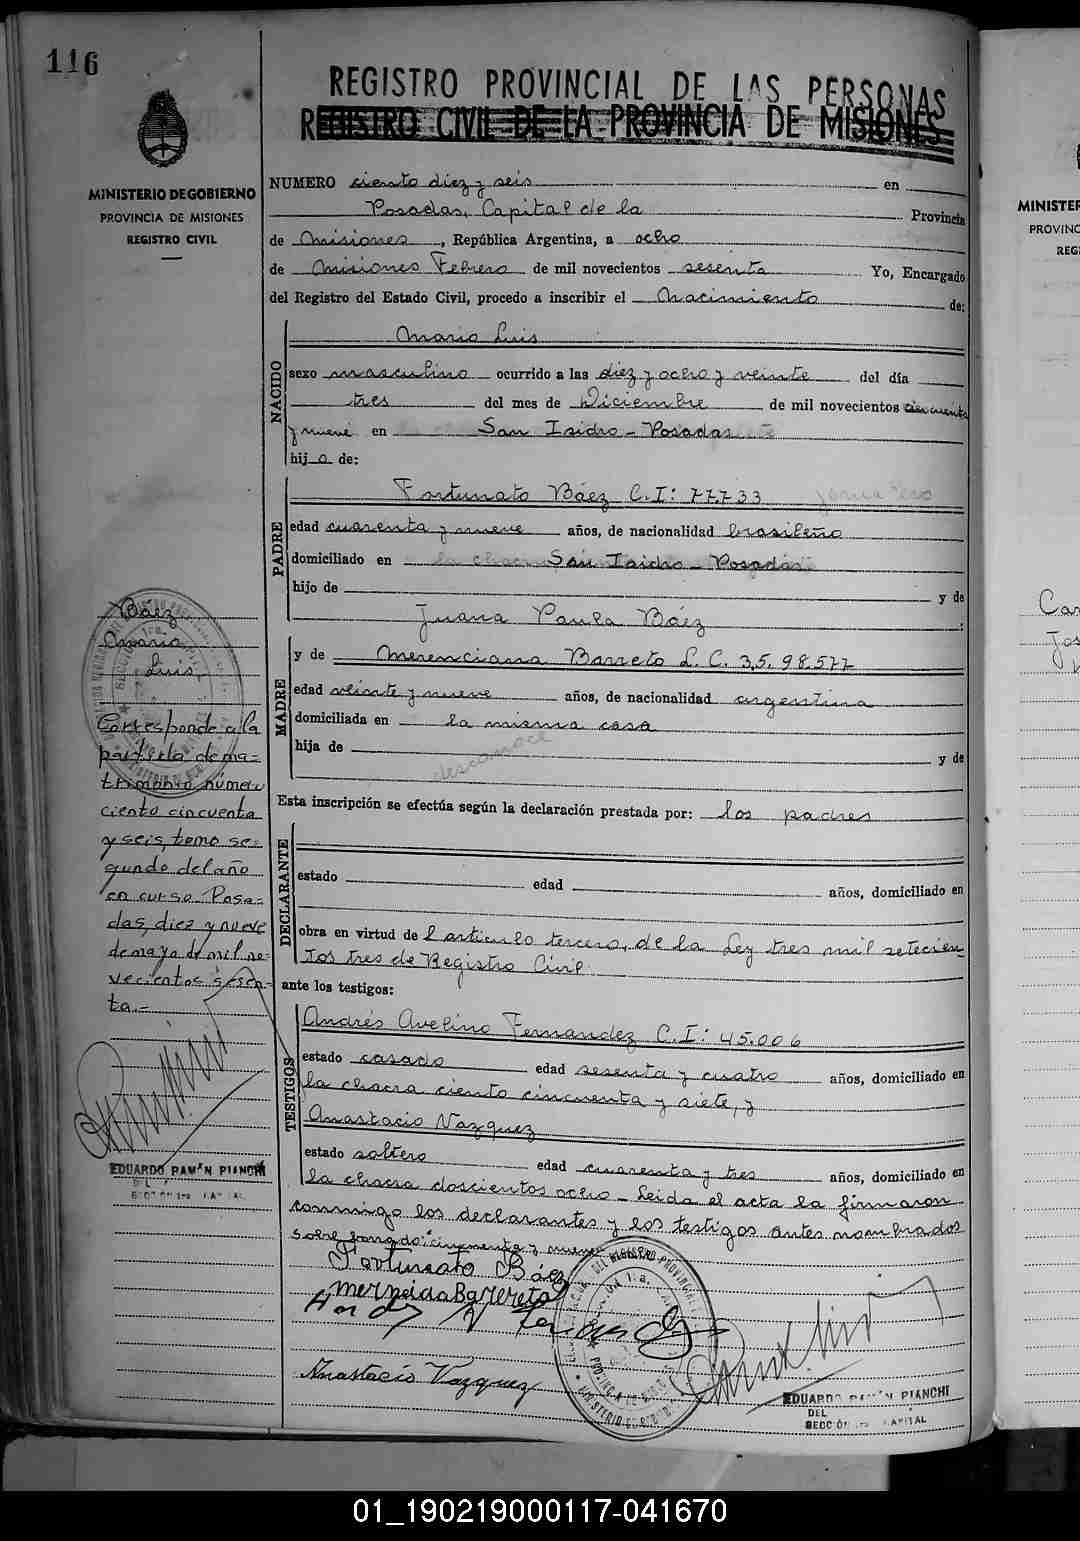 116
REGISTRO PROVINCIAL DE LAS PERSONAS
REGISTRO CIVIL DE LA PROVINCIA DE MISIONES
MINISTERIO DE GOBIERNO
PROVINCIA DE MISIONES
REGISTRO CIVIL
NUMERO ciento diez y seis en
Posadas, Capital de la Provincia
de Misiones, República Argentina, a ocho
de Misiones Febrero de mil novecientos sesenta Yo, Encargado
del Registro del Estado Civil, procedo a inscribir el Nacimiento de:
NACIDO
Mario Luis
sexo masculino ocurrido a las diez y ocho y veinte del día
tres del mes de Diciembre de mil novecientos cincuenta
y nueve en San Isidro - Posadas
hijo de:
PADRE
Fortunato Báez C.I: 77.733
edad cuarenta y nueve años, de nacionalidad brasileño
domiciliado en San Isidro - Posadas
hijo de y de
Juana Paula Báez
MADRE
y de Merenciana Barreto L.C. 3.5.98.577
edad veinte y nueve años, de nacionalidad argentina
domiciliada en la misma casa
hija de y de
desconoce
Esta inscripción se efectúa según la declaración prestada por: los padres
DECLARANTE
estado edad años, domiciliado en
obra en virtud de l artículo tercero, de la Ley tres mil setecien
tos tres de Registro Civil.
ante los testigos:
TESTIGOS
Andrés Avelino Fernandez C.I: 45.006
estado casado edad sesenta y cuatro años, domiciliado en
la chacra ciento cincuenta y siete, y
Anastacio Vazquez
estado soltero edad cuarenta y tres años, domiciliado en
la chacra doscientos ocho - Leida el acta la firmaron
conmigo los declarantes y los testigos antes nombrados
sobre borrado: cincuenta y nueve
Fortunato Báez
merneida Barereta
Anastacio Vazquez
EDUARDO RAMÓN PIANCHI
DEL
SECCIÓN 1ra CAPITAL
Báez
Mario
Luis,
Corresponde a la
partida de ma=
trimonio número
ciento cincuenta
y seis, tomo se-
gundo del año
en curso Posa-
das, diez y nueve
de mayo de mil no-
vecientos sesen-
ta.-
EDUARDO RAMÓN PIANCHI
DEL
SECCIÓN 1ra CAPITAL
MINISTER
PROVINC
REG
Ca
Jos
01_190219000117-041670